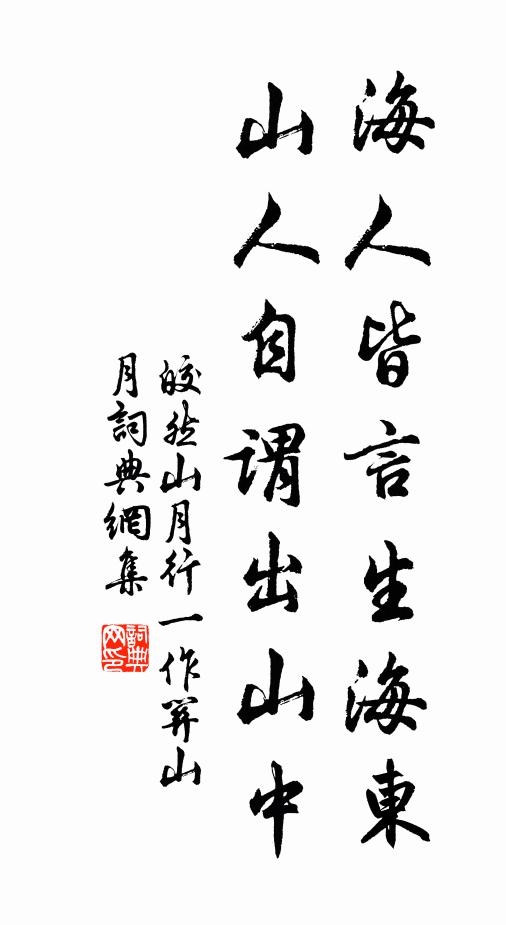 海人皆言生海東
山人自謂出山中
皎然山月行一作關山
月詞典網集
詞典網印